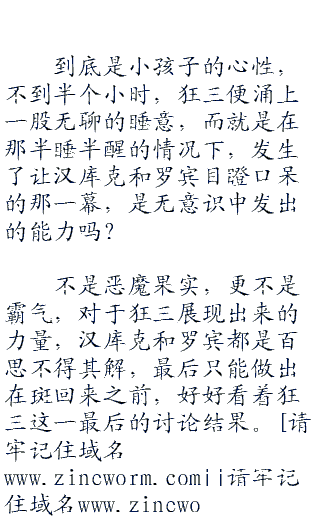 到底是小孩子的心性，
不到半个小时，狂三便涌上
一股无聊的睡意，而就是在
那半睡半醒的情况下，发生
了让汉库克和罗宾目瞪口呆
的那一幕，是无意识中发出
的能力吗？
不是恶魔果实，更不是
霸气，对于狂三展现出来的
力量，汉库克和罗宾都是百
思不得其解，最后只能做出
在斑回来之前，好好看着狂
三这一最后的讨论结果。[请
牢记住域名
www.zincworm.com||请牢记
住域名www.zincwo